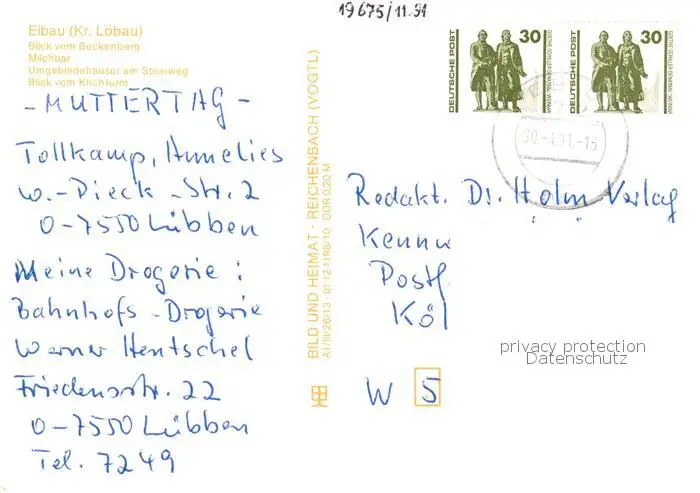 19675/11.91
Eibau (Kr. Löbau)
Blick vom Beckenberg
Milchbar
Umgebindehäuser am Steinweg
Blick vom Kirchturm
- MUTTERTAG -
Tollkamp, Annelies
W.-Pieck-Str. 2
O-7550 Lübben
Meine Drogerie:
Bahnhofs-Drogerie
Werner Hentschel
Friedensstr. 22
O-7550 Lübben
Tel. 7249
BILD UND HEIMAT · REICHENBACH (VOGTL)
DDR 0,20 M
DEUTSCHE POST 30 GOETHE-SCHILLER-DENKMAL, WEIMAR
DEUTSCHE POST 30 GOETHE-SCHILLER-DENKMAL, WEIMAR
30.-4.91.-15
Redakt. Dr. Holm Verlag
Kennw
Postf.
Köl
W 5
privacy protection
Datenschutz